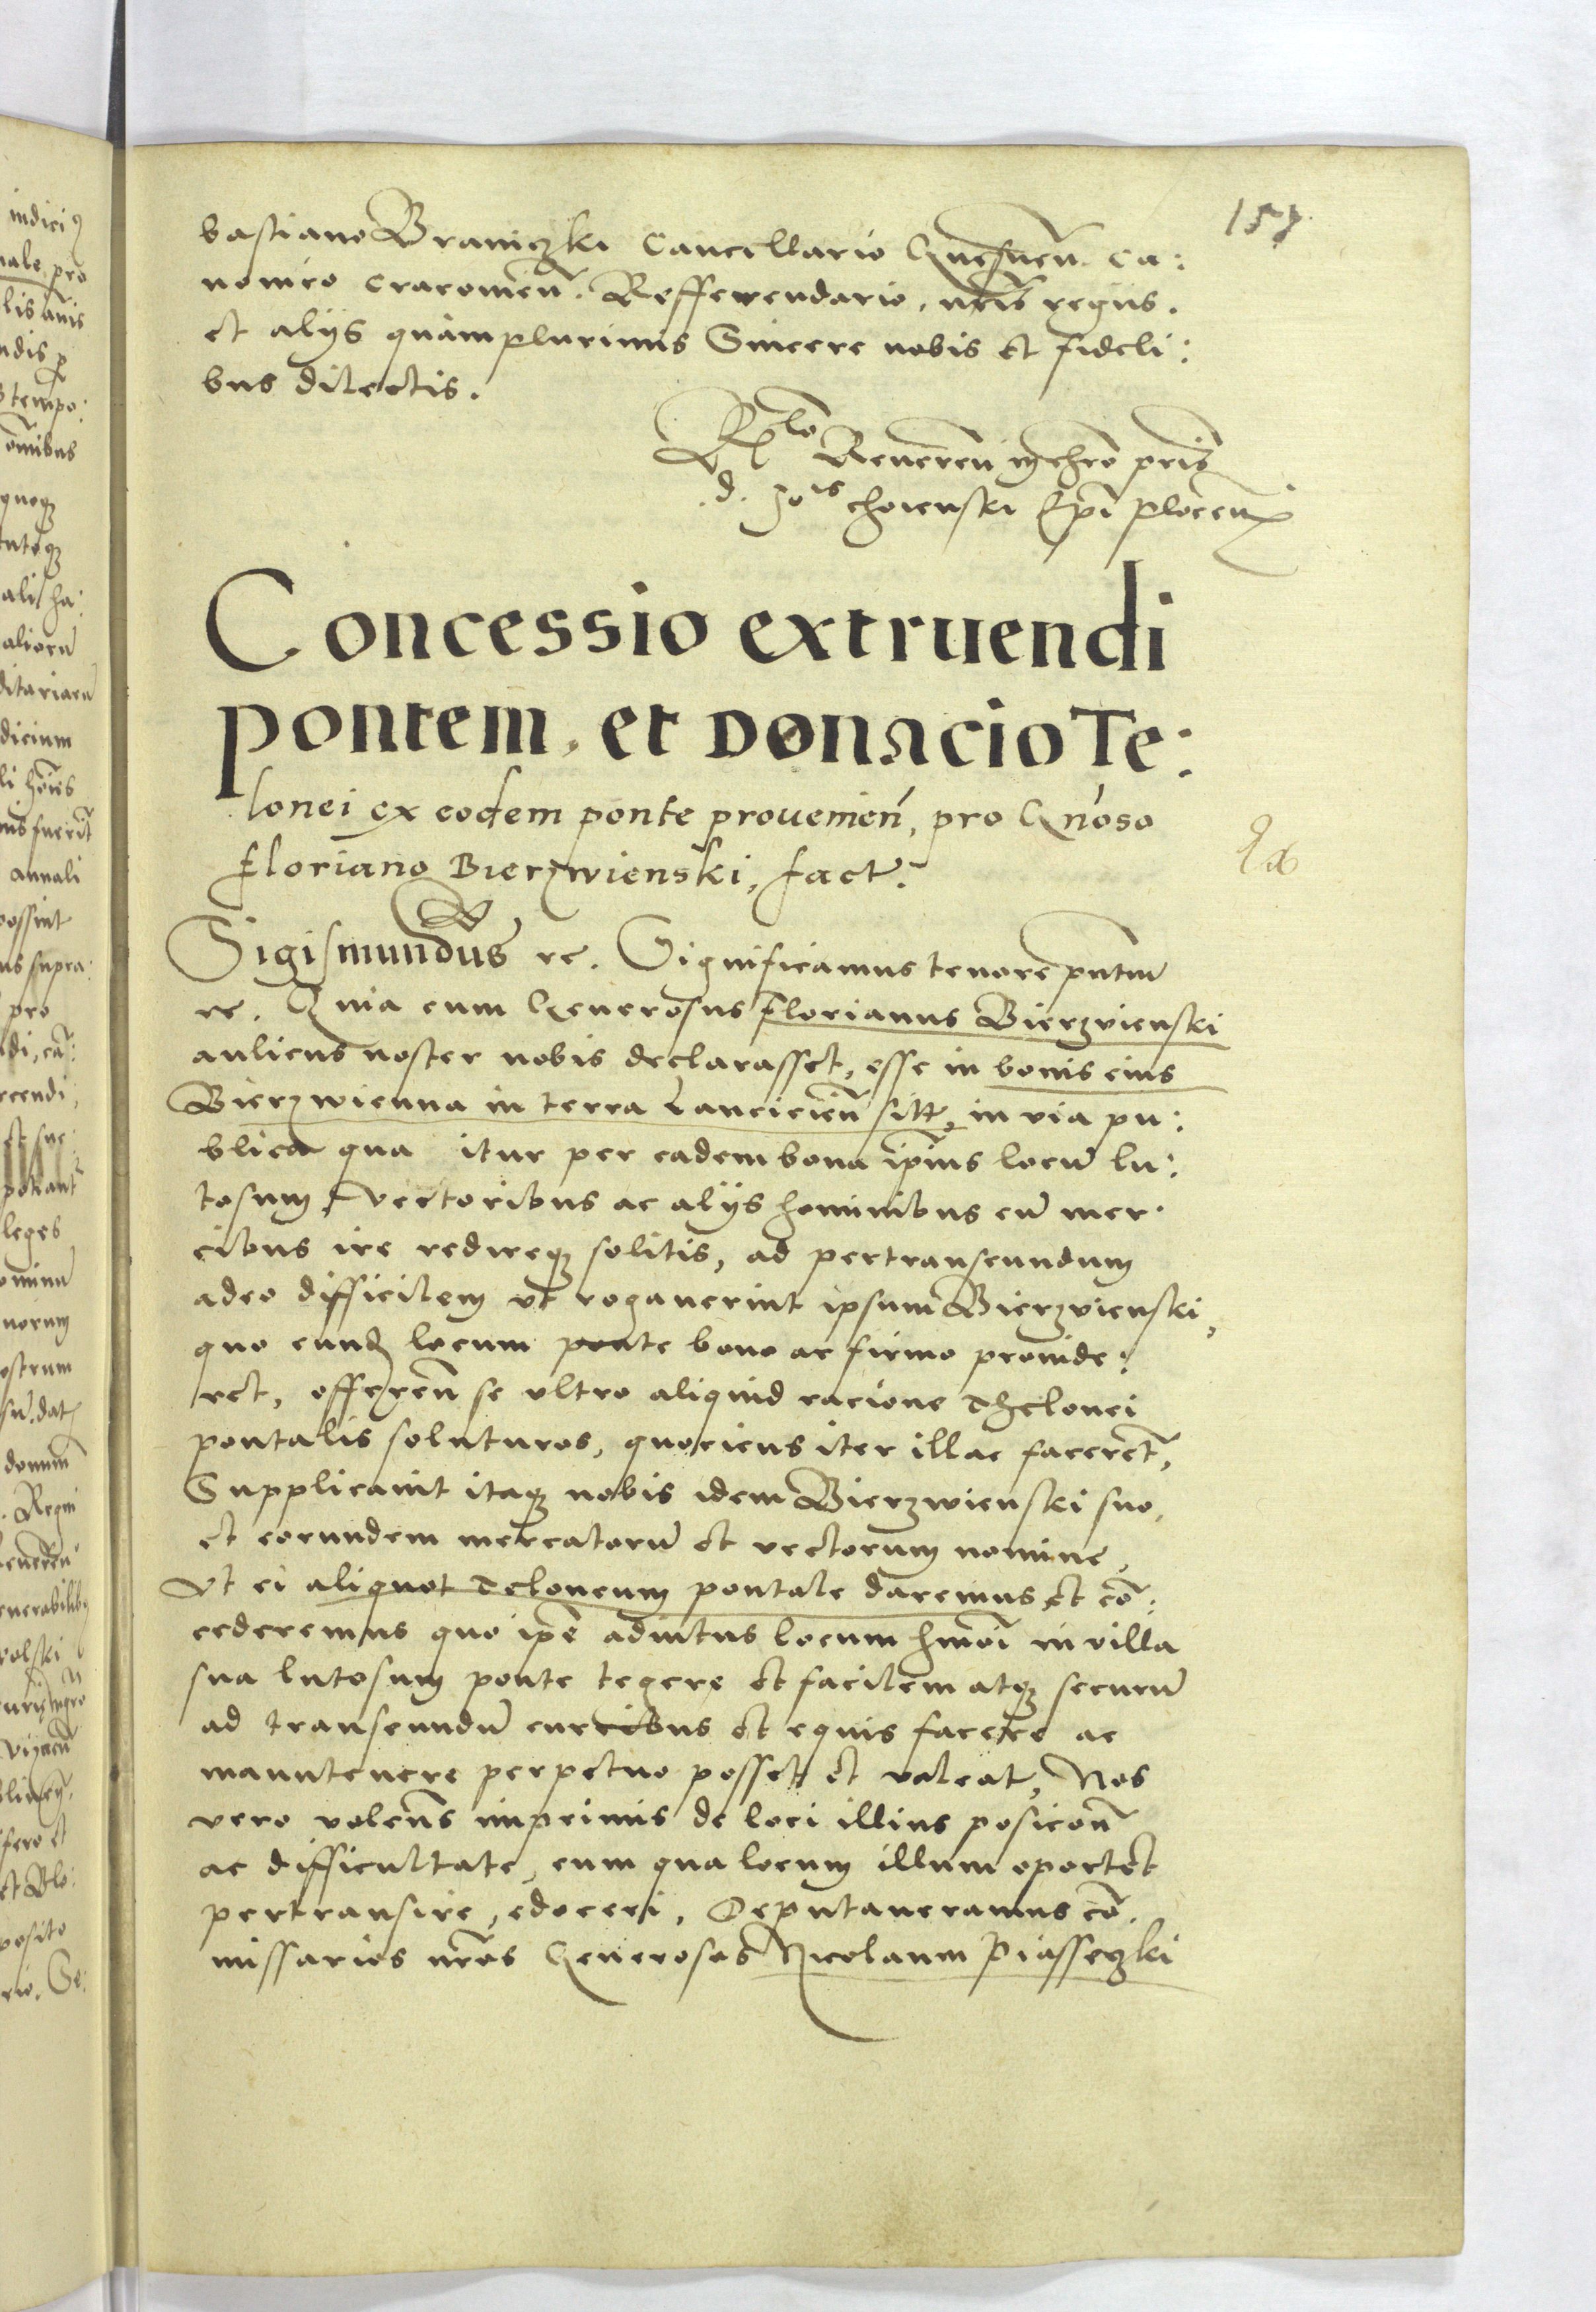 157
bastiano Braniczki Cancellario Gnesnen̄. Ca:
nonico Cracouien̄. Refferendario, nr̄is regiis.
et alijs quàmplurimis Sincere nobis et fideli:
bus dilectis.
Rlō Reueren in chrō prīs
.d. Jois choienski Ep̄i plocen̄
Concessio extruendi
pontem, et Donacio Te:
lonei ex eodem ponte prouenien̄, pro Gn̄oso
Floriano Bierzwienski, fact.
Sigismundus rc. Significamus tenore pn̄tium
rc. Quia cum Generosus Florianus Bierzvienski
aulicus noster nobis declarasset, esse in bonis eius
Bierzwienna in terra Lancicien̄ sitt, in via pu:
blica qua itur per eadem bona ip̄ius locū lu:
tosum, vectoribus ac alijs hominibus cū mer:
cibus ire redireq solitis, ad pertranseundum
adeo difficilem vt rogauerint ipsum Bierzvienski,
quo eund locum ponte bono ac firmo prouide:
ret, offeren̄ se vltro aliquid racione Thelonei
pontalis soluturos, quociens iter illac facerēt,
Supplicauit itaq nobis idem Bierzwienski suo,
et eorundem mercatorū et vectorum nomine,
Vt ei aliquot Teloneum pontale daremus et cō:
cederemus quo ip̄e adiutus locum hmōi in villa
sua lutosum ponte tegere et facilem atq securū
ad transeundū curribus et equis facere ac
manutenere perpetuo posset et valeat, Nos
vero volen̄s imprimis de loci illius posicōn̄
ac difficultate, cum qua locum illum oportet
pertransire, edoceri, Deputaueramus cō:
missarios nr̄os Generosos Nicolaum Piasseczki